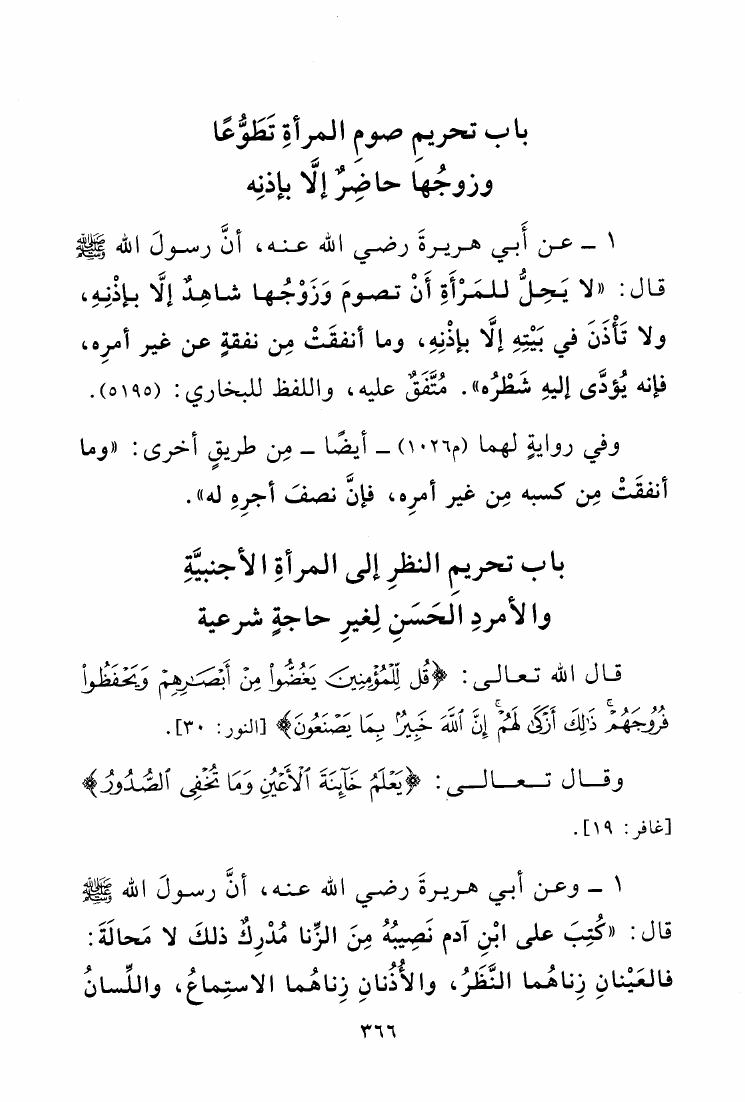 باب تحريمِ صومِ المرأةِ تَطَوُّعًا
وزوجُها حاضِرٌ إلَّا بإذنِه
١ ـ عـن أَبـي هـريـرةَ رضـي الله عـنـه، أنَّ رسـولَ الله ﷺ
قال: «لا يَـحِـلُّ للـمَـرْأَةِ أَنْ تـصـومَ وَزَوْجُـهـا شـاهِـدٌ إلَّا بـإِذْنِـهِ،
ولا تَأْذَنَ في بَيْتِهِ إلَّا بإذْنِهِ، وما أنفقَتْ مِن نفقةٍ عن غير أمرِه،
فإنه يُؤدَّى إليهِ شَطْرُه». مُتَّفَقٌ عليه، واللفظ للبخاري: (٥١٩٥).
وفي روايةٍ لهما (م١٠٢٦) ـ أيضًا ـ مِن طريقٍ أخرى: «وما
أنفقَتْ مِن كسبه مِن غير أمرِه، فإنَّ نصفَ أجرِهِ له».
باب تحريمِ النظرِ إلى المرأةِ الأجنبيَّةِ
والأمردِ الحَسَنِ لِغيرِ حاجةٍ شرعية
قـال الله تـعـالـى: ﴿قُل لِّلْمُؤْمِنِينَ يَغُضُّوا۟ مِنْ أَبْصَـٰرِهِمْ وَيَحْفَظُوا۟
فُرُوجَهُمْ ۚ ذَٰلِكَ أَزْكَىٰ لَهُمْ ۗ إِنَّ ٱللَّهَ خَبِيرٌۢ بِمَا يَصْنَعُونَ﴾ [النور: ٣٠].
وقــال تــعــالــى: ﴿يَعْلَمُ خَآئِنَةَ ٱلْأَعْيُنِ وَمَا تُخْفِى ٱلصُّدُورُ﴾
[غافر: ١٩].
١ ـ وعـن أبـي هـريـرةَ رضـي الله عنـه، أنَّ رسـولَ الله ﷺ
قال: «كُتِبَ على ابْنِ آدم نَصِيبُهُ مِنَ الزِّنا مُدْرِكٌ ذلكَ لا مَحالَةَ:
فالعَيْنانِ زِناهُما النَّظَرُ، والأُذُنانِ زِناهُما الاستِماعُ، واللِّسانُ
٣٦٦